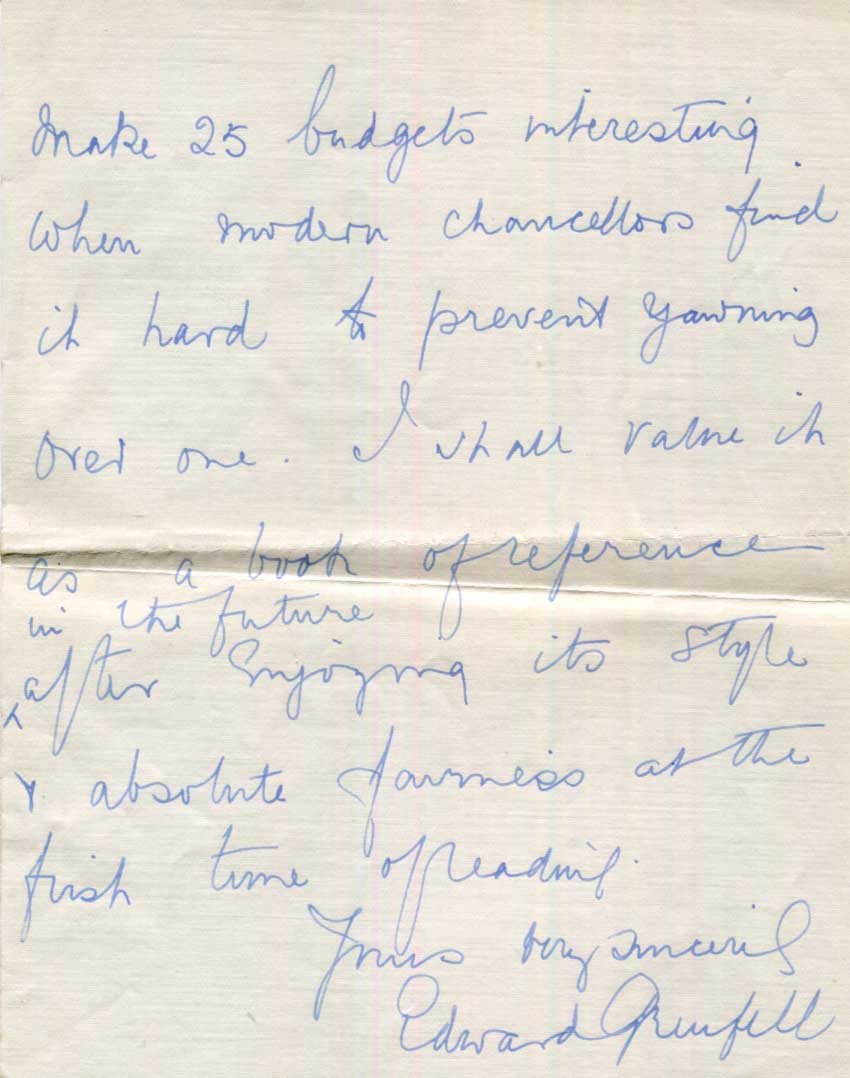 make 25 budgets interesting
when modern chancellors find
it hard to prevent yawning
over one. I shall value it
as a book of reference
in the future
after enjoying its style
& absolute fairness at the
first time of reading.
Yours very sincerely
Edward Grenfell